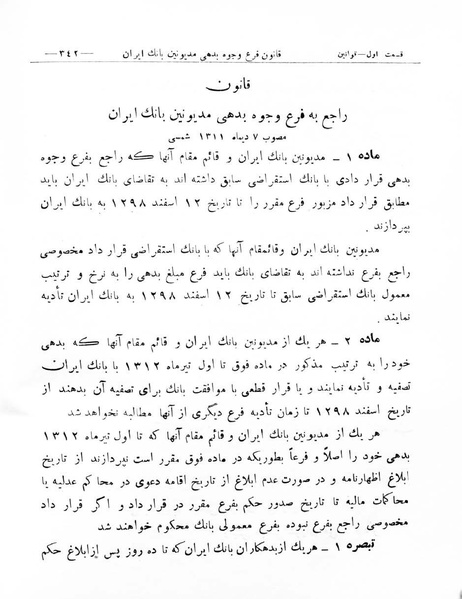 قسمت اول—قوانین قانون فرع وجوه بدهی مدیونین بانك ایران —۳٤۲—
قانون
راجع به فرع وجوه بدهی مدیونین بانك ایران
مصوب ۷ دیماه ۱۳۱۱ شمسی
ماده ۱ — مدیونین بانك ایران و قائم مقام آنها كه راجع بفرع وجوه
بدهی قرار دادی با بانك استقراضی سابق داشته اند به تقاضای بانك ایران باید
مطابق قرار داد مزبور فرع مقرر را تا تاریخ ۱۲ اسفند ۱۲۹۸ به بانك ایران
بپردازند .
مدیونین بانك ایران وقائمقام آنها كه با بانك استقراضی قرار داد مخصوصی
راجع بفرع نداشته اند به تقاضای بانك باید فرع مبلغ بدهی را به نرخ و ترتیب
معمول بانك استقراضی سابق تا تاریخ ۱۲ اسفند ۱۲۹۸ به بانك ایران تأدیه
نمایند .
ماده ۲ — هر یك از مدیونین بانك ایران و قائم مقام آنها كه بدهی
خود را به ترتیب مذكور در ماده فوق تا اول تیرماه ۱۳۱۲ با بانك ایران
تصفیه و تأدیه نمایند و یا قرار قطعی با موافقت بانك برای تصفیه آن بدهند از
تاریخ اسفند ۱۲۹۸ تا زمان تأدیه فرع دیگری از آنها مطالبه نخواهد شد
هر یك از مدیونین بانك ایران و قائم مقام آنها كه تا اول تیرماه ۱۳۱۲
بدهی خود را اصلاً و فرعاً بطوریكه در ماده فوق مقرر است نپردازند از تاریخ
ابلاغ اظهارنامه و در صورت عدم ابلاغ از تاریخ اقامه دعوی در محاكم عدلیه یا
محاكمات مالیه تا تاریخ صدور حكم بفرع مقرر در قرار داد و اگر قرار داد
مخصوصی راجع بفرع نبوده بفرع معمولی بانك محكوم خواهند شد
تبصره ۱ — هر یك از بدهكاران بانك ایران كه تا ده روز پس از ابلاغ حكم